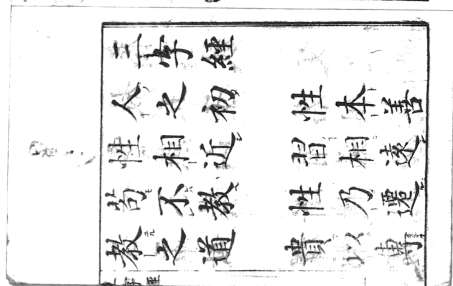 三字經
人之初 性本善
性相近 習相遠
苟不教 性乃遷
教之道 貴以專